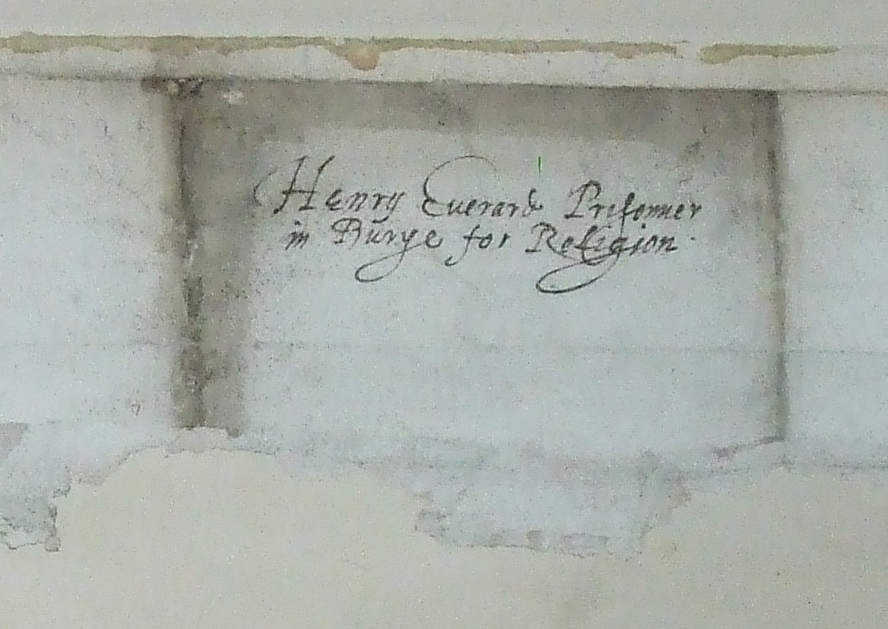 Henry Euerard Prisonner
in Burye for Religion.